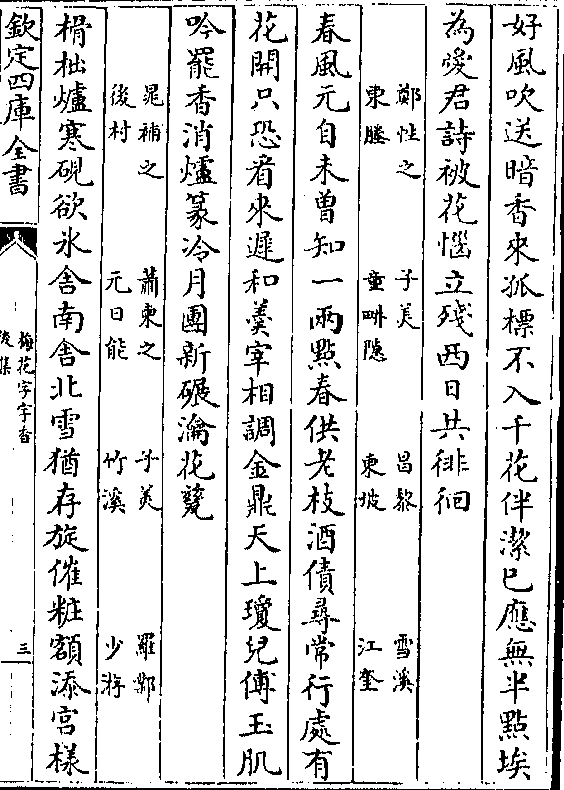 好風吹送暗香來孤標不入千花伴潔已應無半點埃
為愛君詩被花惱立殘西日共徘徊
鄭性之　子美　昌黎　雪溪
東塍　童畊隱　東坡　江奎
春風元自未曾知一兩點春供老枝酒債尋常行處有
花開只恐看來遲和羹宰相調金鼎天上瓊兒傅玉肌
吟罷香消爐篆冷月團新碾瀹花甆
晁補之　蕭東之　子美　羅鄴
後村　元日能　竹溪　少游
榾柮爐寒硯欲氷舍南舍北雪猶存旋催粧額添宫様
欽定四庫全書
梅花字字香
後集
三